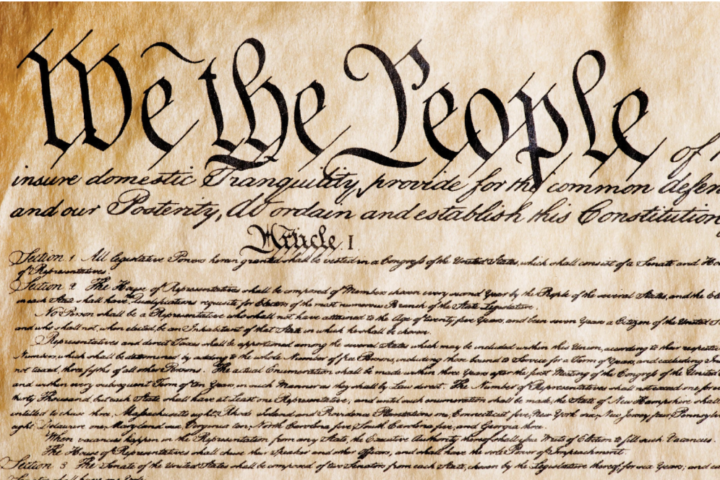 We the People of
insure domestic Tranquility, provide for the common defen
and our Posterity, do ordain and establish this Constitution
Article I.
Section 1. All legislative Powers herein granted shall be vested in a Congress of the United States, which shall consist of a Senate and Hou
of Representatives.
Section 2. The House of Representatives shall be composed of Members chosen every second Year by the People of the several States, and the
in each State shall have Qualifications requisite for Electors of the most numerous Branch of the State Legislature.
No Person shall be a Representative who shall not have attained to the Age of twenty five Years, and been seven Years a Citizen of the United
and who shall not, when elected, be an Inhabitant of that State in which he shall be chosen.
Representatives and direct Taxes shall be apportioned among the several States which may be included within this Union, according to their respective
Numbers, which shall be determined by adding to the whole Number of free Persons, including those bound to Service for a Term of Years, and excluding
not taxed, three fifths of all other Persons. The actual Enumeration shall be made within three Years after the first Meeting of the Congress of the United
and within every subsequent Term of ten Years, in such Manner as they shall by Law direct. The Number of Representatives shall not exceed one for
thirty Thousand, but each State shall have at Least one Representative; and until such enumeration shall be made, the State of New Hampshire shall
entitled to chuse three, Massachusetts eight, Rhode Island and Providence Plantations one, Connecticut five, New York six, New Jersey four, Pennsylv
eight, Delaware one, Maryland six, Virginia ten, North Carolina five, South Carolina five, and Georgia three.
When vacancies happen in the Representation from any State, the Executive Authority thereof shall issue Writs of Election to fill such Vacancies.
The House of Representatives shall chuse their Speaker and other Officers; and shall have the sole Power of Impeachment.
Section 3. The Senate of the United States shall be composed of two Senators from each State, chosen by the Legislature thereof, for six Years; and